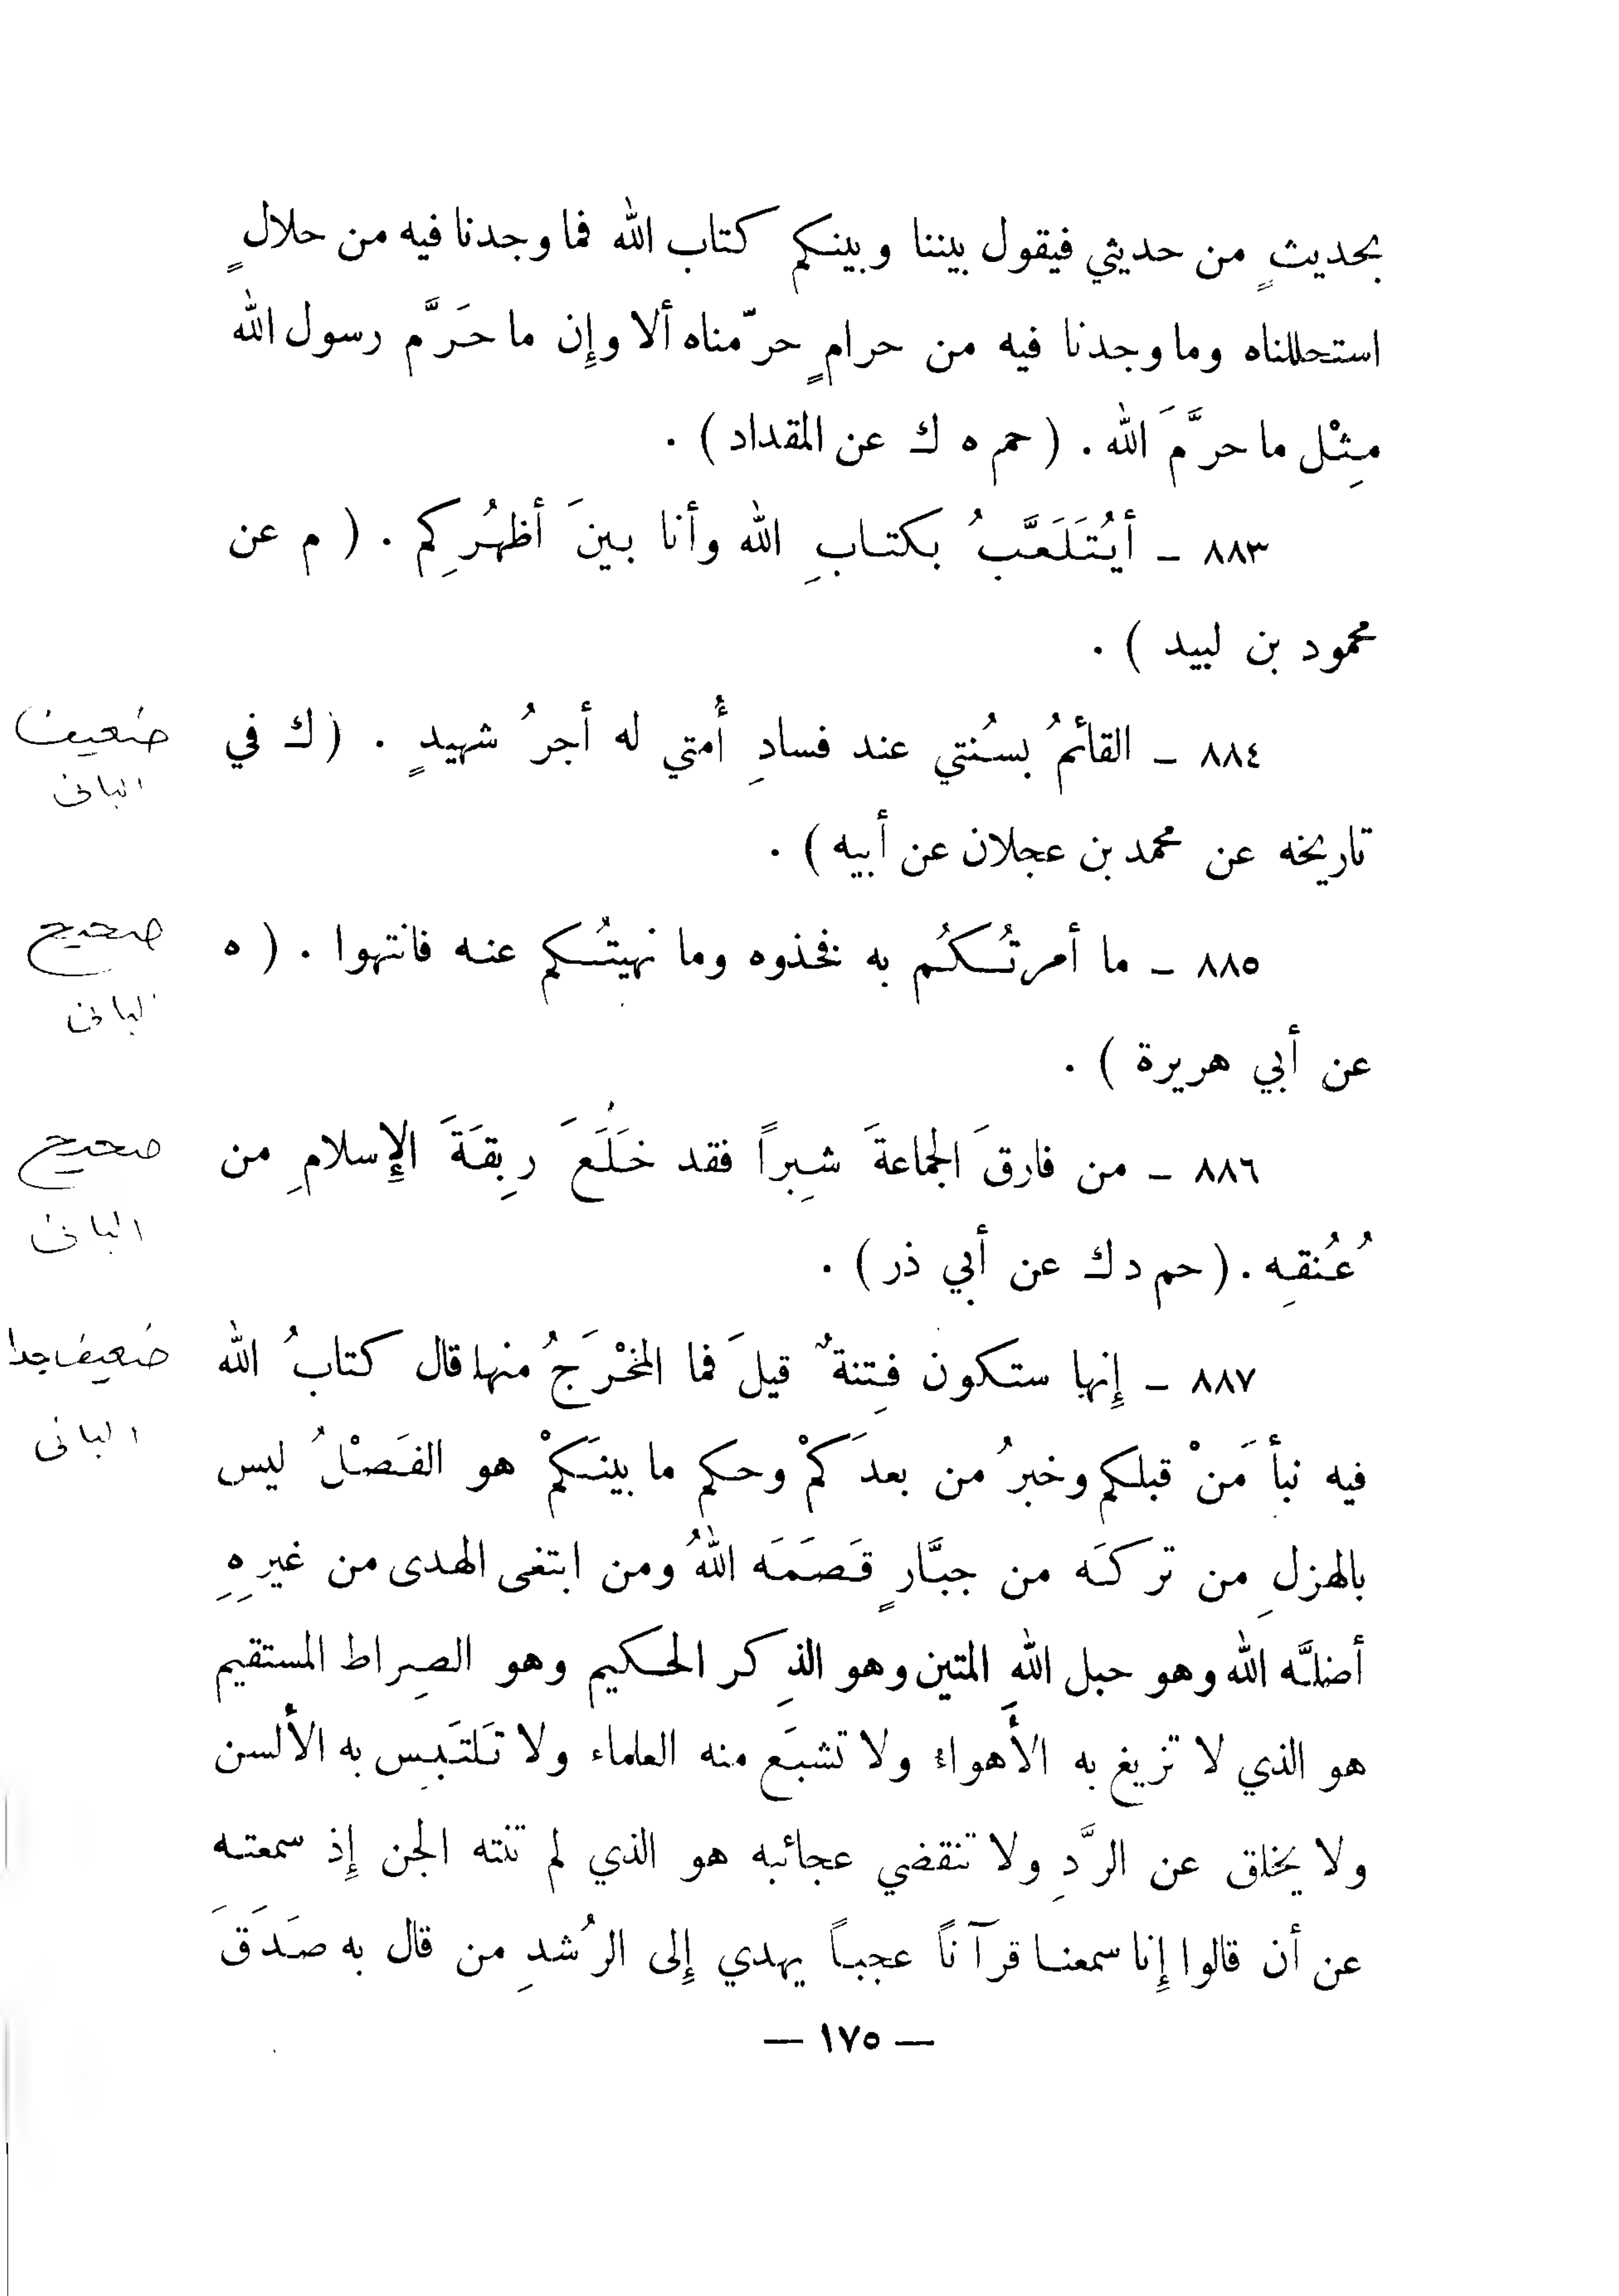 بحديثٍ من حديثي فيقول بيننا وبينكم كتاب الله فما وجدنا فيه من حلالٍ
استحللناه وما وجدنا فيه من حرامٍ حرّمناه ألا وإِن ما حَرَّم رسول الله
مِثْل ما حرَّمَ الله . ( حم ه ك عن المقداد ) .
٨٨٣ – أيُتَلَعَّبُ بكتابِ الله وأنا بينَ أظهُرِكم . ( م عن
محمود بن لبيد ) .
٨٨٤ – القائمُ بسُنتي عند فسادِ أُمتي له أجرُ شهيدٍ . ( ك في
ضعيف
البانى
تاريخه عن محمد بن عجلان عن أبيه ) .
٨٨٥ – ما أمرتُكُم به فخذوه وما نهيتُكم عنه فانتهوا . ( ه
صحيح
البانى
عن أبي هريرة ) .
٨٨٦ – من فارقَ الجماعةَ شِبراً فقد خَلَعَ رِبقَةَ الإِسلامِ من
صحيح
البانى
عُنُقِه . ( حم د ك عن أبي ذر ) .
٨٨٧ – إِنها ستكون فِتنةٌ قيلَ فما المخْرَجُ منها قال كتابُ الله
ضعيف جدا
البانى
فيه نبأ مَنْ قبلكم وخبرُ من بعدَكمْ وحكم ما بينَكمْ هو الفَصْلُ ليس
بالهزلِ من تركَه من جبَّارٍ قَصَمَه اللهُ ومن ابتغى الهدى من غيرِهِ
أضلَّه الله وهو حبل اللهِ المتين وهو الذِكر الحكيم وهو الصِراط المستقيم
هو الذي لا تزيغ به الأَهواء ولا تشبَع منه العلماء ولا تَلتَبِس به الألسن
ولا يخلق عن الرَّدِ ولا تنقضي عجائبه هو الذي لم تنته الجن إِذ سمعته
عن أن قالوا إِنا سمعنا قرآناً عجباً يهدي إِلى الرُشدِ من قال به صَدَقَ
— ١٧٥ —